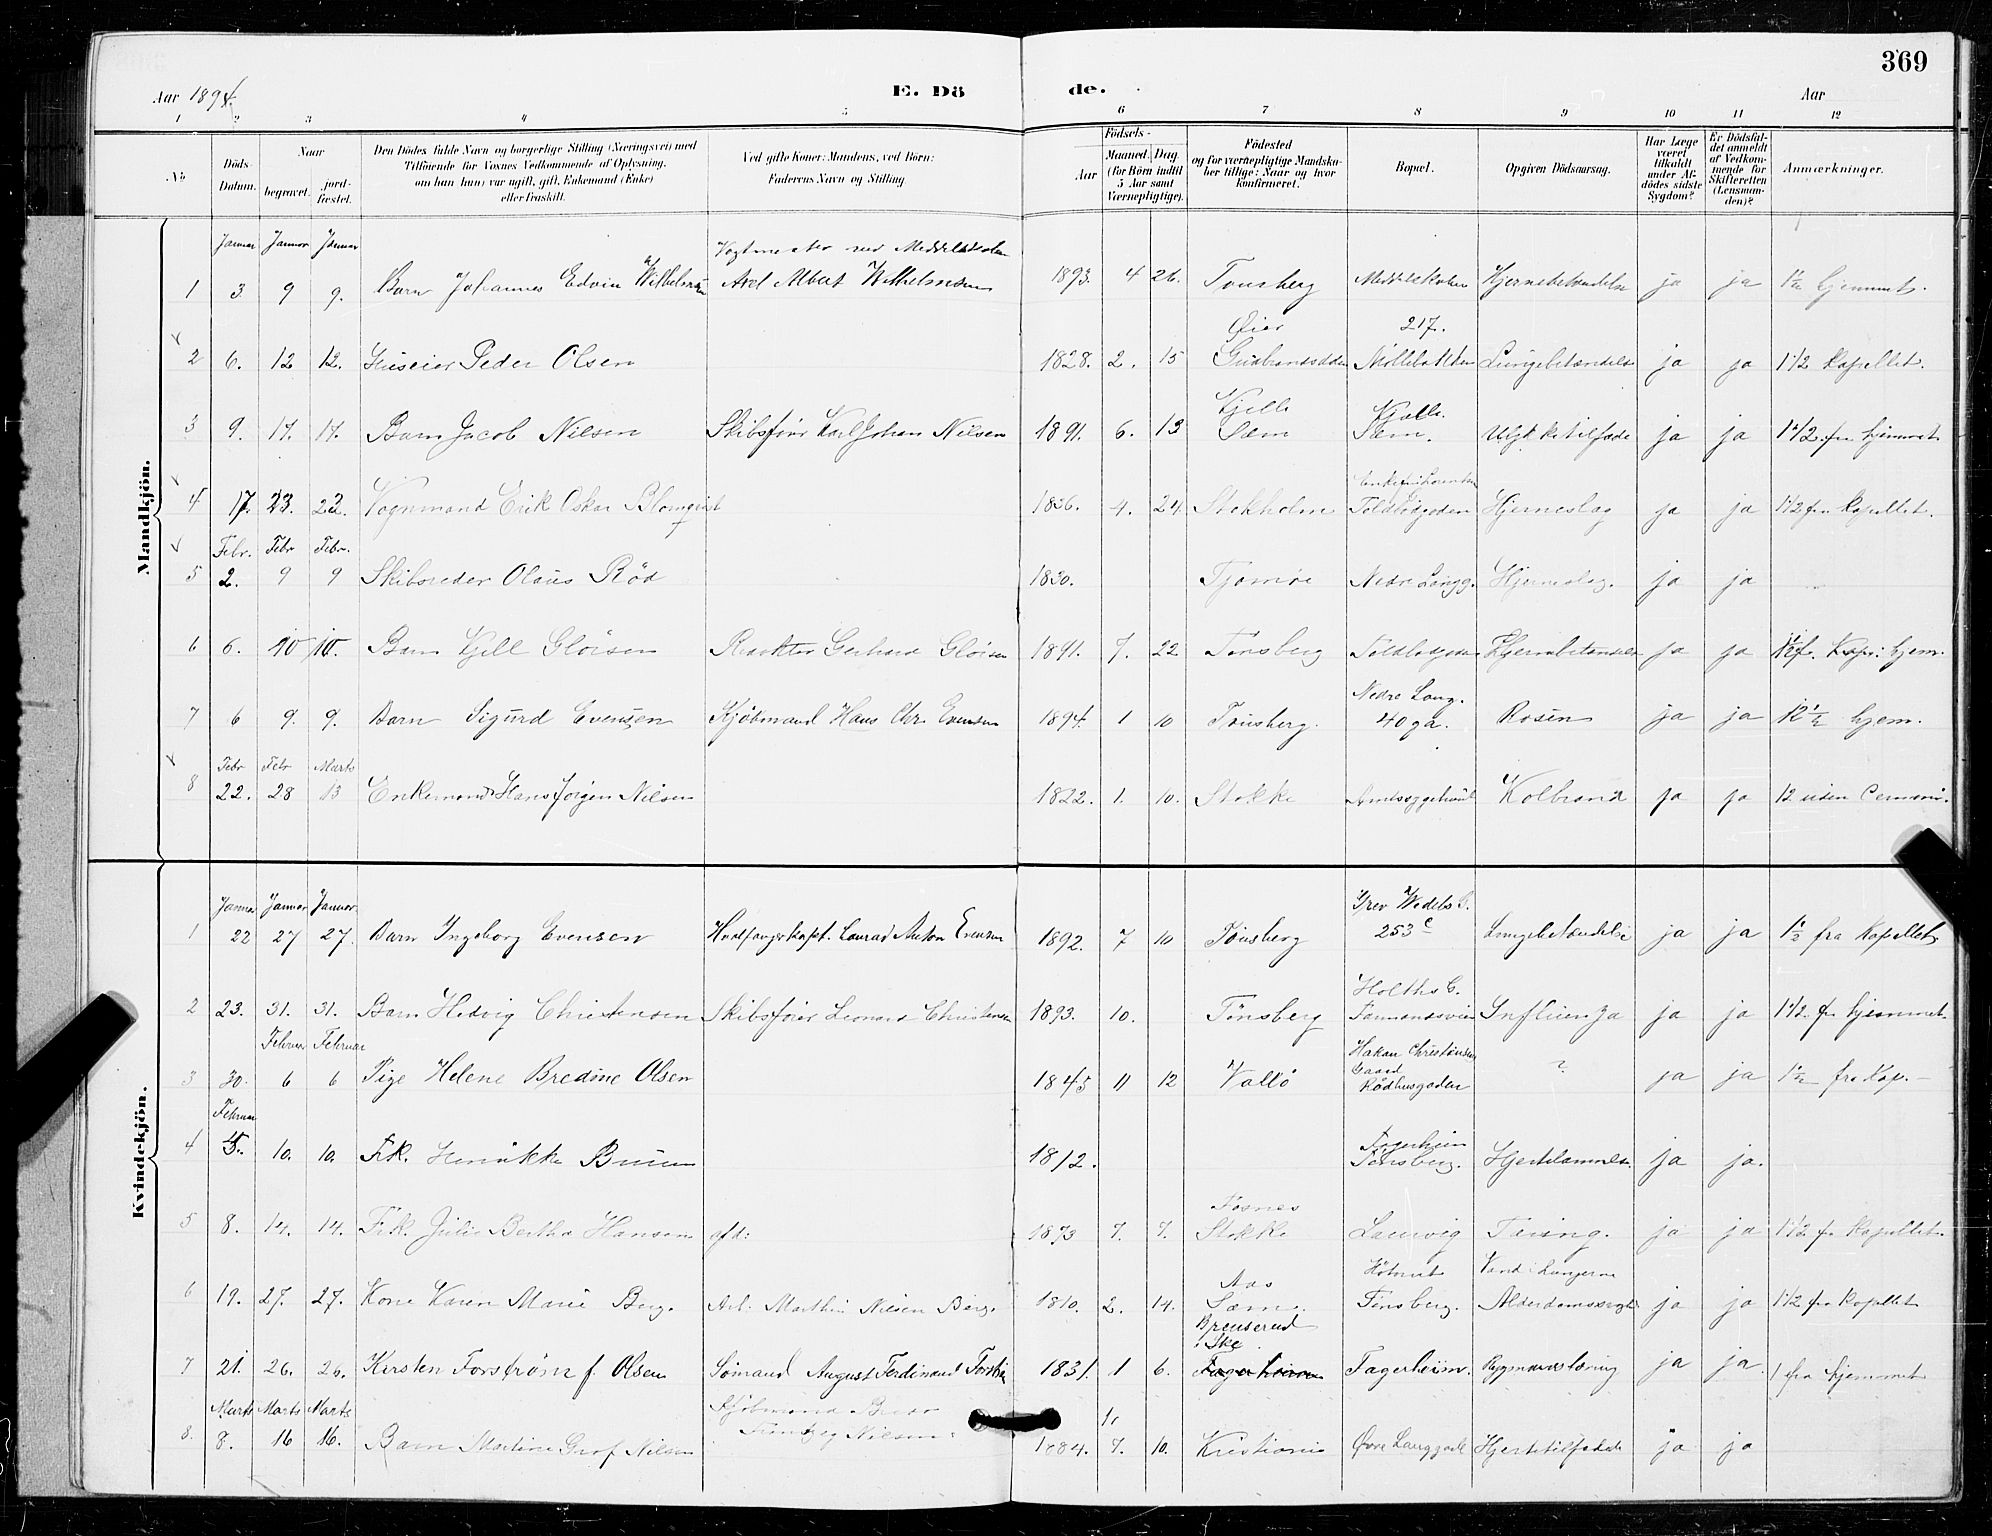 369
Aar 1894.
E. Dö de.
Aar
1 2 3 4 5 6 7 8 9 10 11 12
No
Döds-Datum.
Naar
begravet.
jord-fæstet.
Den Dödes fulde Navn og borgerlige Stilling (Næringsvei) med
Tilföiende for Voxnes Vedkommende af Oplysning,
om han (hun) var ugift, gift, Enkemand (Enke)
eller fraskilt.
Ved gifte Koner: Mandens, ved Börn:
Faderens Navn og Stilling
Födsels-
Aar
Maaned. Dag
(for Börn indtil
5 Aar samt
Værnepligtige).
Födested
og for værnepligtige Mandska-
ber tillige: Naar og hvor
konfirmeret.
Bopæl.
Opgiven Dödsaarsag.
Har Læge
været
tilkaldt
under Af-
dödes sidste
Sygdom?
Er Dödsfal-
det anmeldt
af Vedkom-
mende for
Skifteretten
(Lensman-
den)?
Anmærkninger.
Mandkjön.
Januar Januar Januar Vagtmester ved Middelskolen
1 3 9 9. Barn Johannes Edvin Wilhelmsen Axel Albert Wilhelmsen 1893. 4 26. Tønsberg Middelskolen Hjernebetændelse ja ja 1½ hjemmet.
Øier 217.
2 6. 12 12. Huseier Peder Olsen 1828. 2. 15 Gudbrandsdalen Møllebakken Lungebetændelse ja ja 1 1/2 Kapellet.
Kjelle Kjelle.
3 9. 17. 17. Barn Jacob Nilsen Skibsfører Karl Johan Nilsen 1891. 6. 13 Sæm Sæm. Ulykkestilfælde ja ja 1 1/2 fra hjemmet
4 17. 23. 23. Vognmand Erik Oskar Blomqvist 1836. 4. 24 Stokholm Toldbodgaden Hjerneslag ja ja 1 1/2 fra Kapellet.
Febr. Febr Febr.
5 2. 9 9 Skibsreder Olaus Rød 1830. Tjømøe Nedre Langg. Hjerneslag. ja ja
6 6. 10 10. Barn Kjell Gløisen Redaktør Gerhard Gløisen 1891. 7. 22 Tønsberg Toldbodgaden Hjernebetændelse ja ja
Nedre Lang.
7 6 9. 9. Barn Sigurd Evensen Kjøbmand Hans Chr. Evensen 1894. 1 10 Tønsberg. 40 ga. Rosen ja ja 12½ hjem.
Febr Febr Marts
8 22. 28 13 Enkemand Hans Jørgen Nilsen 1822. 1. 10. Stokke Amtssygehuset Kolbrand ja ja 12 uden Cermoni.
Kvindekjön.
Januar Januar Januar Grev Wedels G.
1 22 27 27. Barn Ingeborg Evensen Hvalfangerkapt. Laurad Anton Evensen 1892. 7 10 Tønsberg 253 c Lungebetændelse ja ja 1½ fra Kapellet
Holths G.
2 23. 31. 31. Barn Hedvig Christensen Skibsfører Leonard Christensen 1893. 10. Tønsberg Influenza ja ja 1 1/2 fr hjemmet
Februar Februar Hakon Christensens
Gaard
3 30. 6 6 Pige Helene Bredine Olsen 1845 11 12 Vallø Rådhusgaden ? ja ja 1½ fra Kap.
Februar Fagerheim
4 5. 10. 10. Frk. Henrikke Bruun 1812. Tønsberg. ja ja.
5 8. 14. 14. Frk. Julie Bertha Hansen afd: 1873 7. 7. Stokke Laurvig Tæring. ja ja 1 1/2 fr Kapellet
Aas Vand i Lungerne
6 19. 27. 27. Kone Karen Marie Berg. Arb. Marthin Nilsen Berg. 1810. 2. 14. Sæm. Tønsberg. Alderdomssvaghed ja ja 1 1/2 fra Kapellet
Breuserud
i Ske
7 21. 26. 26. Kirsten Forstrøm f. Olsen Sømand August Ferdinand Forstrøm 1831. 1 6. Fagerheim Fagerheim. Rygmarvstæring ja ja 1 fra hjemmet
Marts Marts Marts Kjøbmand
8. 8. 16 16. Barn Martine Grof Nilsen Nilsen. 1884. 7. 10. Kristiania Øvre Langgade Hjertetilfælde ja ja